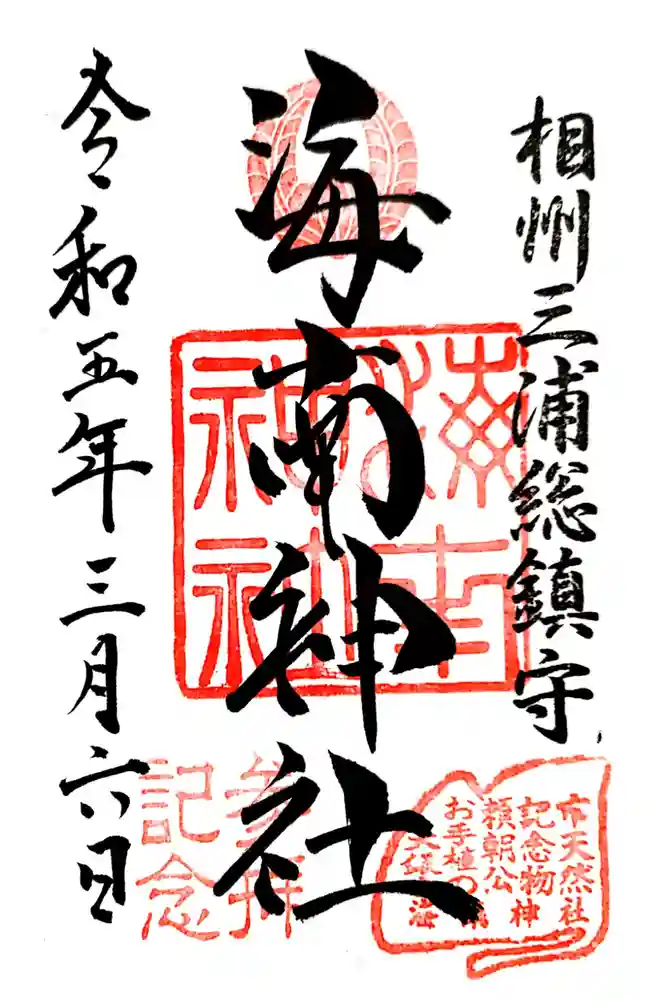 相州三浦総鎮守
海南神社
令和五年三月六日
海南
神社
参拝
記念
市天然
記念物
頼朝公
お手植の
大銀